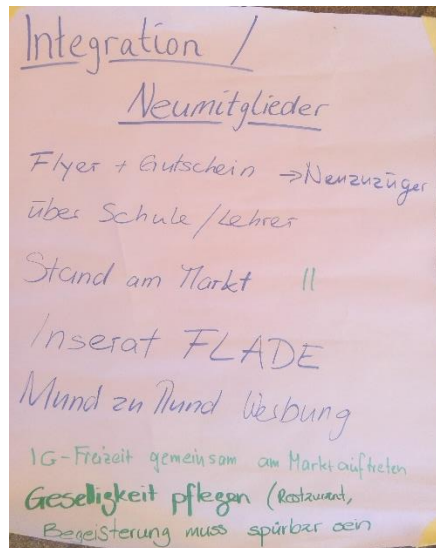 Integration /
Neumitglieder
Flyer + Gutschein → Neuzuzüger
über Schule/Lehrer
Stand am Markt II
Inserat FLADE
Mund zu Mund Werbung
IG-Freizeit gemeinsam am Markt auftreten
Geselligkeit pflegen (Restaurant,
Begeisterung muss spürbar sein